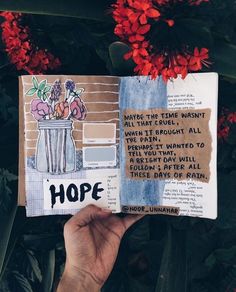 HOPE
MAYBE THE TIME WASN'T
ALL THAT CRUEL,
WHEN IT BROUGHT ALL
THE PAIN,
PERHAPS IT WANTED TO
TELL YOU THAT,
A BRIGHT DAY WILL
FOLLOW; AFTER ALL
THESE DAYS OF RAIN.
@NOOR_UNNAHAR